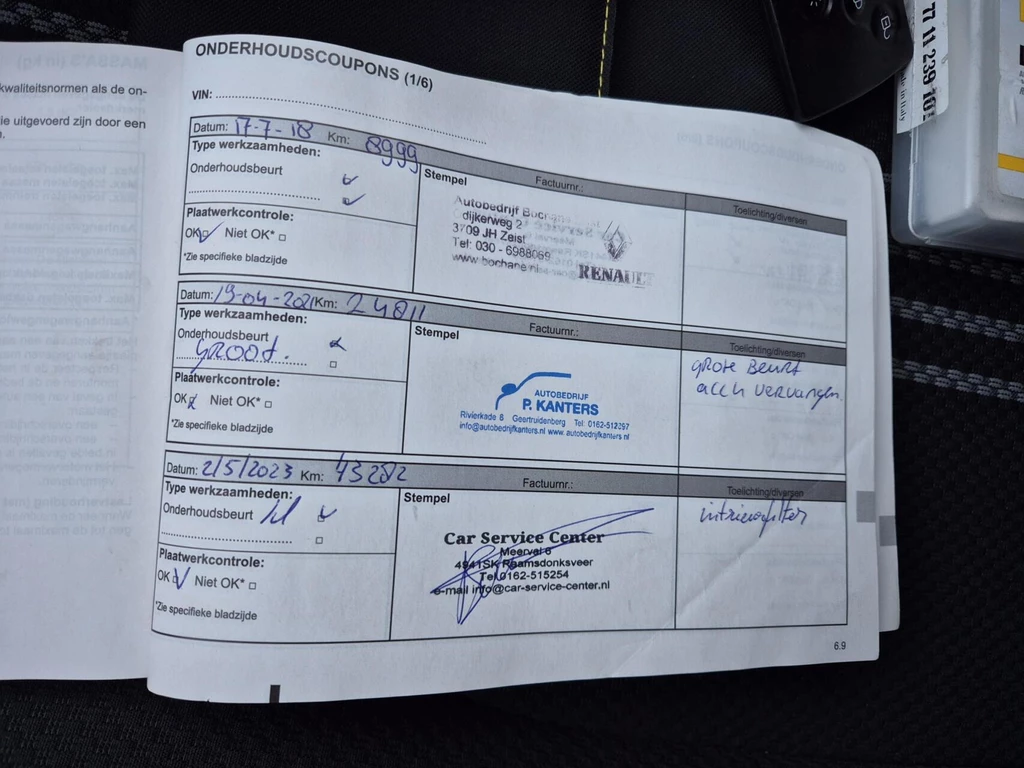 kwaliteitsnormen als de on-
ie uitgevoerd zijn door een
ONDERHOUDSCOUPONS (1/6)
VIN:
Datum: 17-7-18 Km: 8999
Type werkzaamheden:
Onderhoudsbeurt
Plaatwerkcontrole:
OK Niet OK*
*Zie specifieke bladzijde
Stempel
Factuurnr.:
Toelichting/diversen
Autobedrijf Bochane
dijkerweg 2
3709 JH Zeist
Tel: 030 - 6988069
www.bochane.nl
RENAULT
Datum: 19-04-2021 Km: 24811
Type werkzaamheden:
Onderhoudsbeurt
GROOT.
Plaatwerkcontrole:
OK Niet OK*
*Zie specifieke bladzijde
Stempel
Factuurnr.:
Toelichting/diversen
AUTOBEDRIJF
P. KANTERS
Rivierkade 8 Geertruidenberg Tel: 0162-512297
info@autobedrijfkanters.nl www.autobedrijfkanters.nl
grote Beurt
accu vervangen.
Datum: 2/5/2023 Km: 43282
Type werkzaamheden:
Onderhoudsbeurt
Plaatwerkcontrole:
OK Niet OK*
*Zie specifieke bladzijde
Stempel
Factuurnr.:
Toelichting/diversen
Car Service Center
Meerval 6
4941SK Raamsdonksveer
Tel 0162-515254
e-mail info@car-service-center.nl
6.9